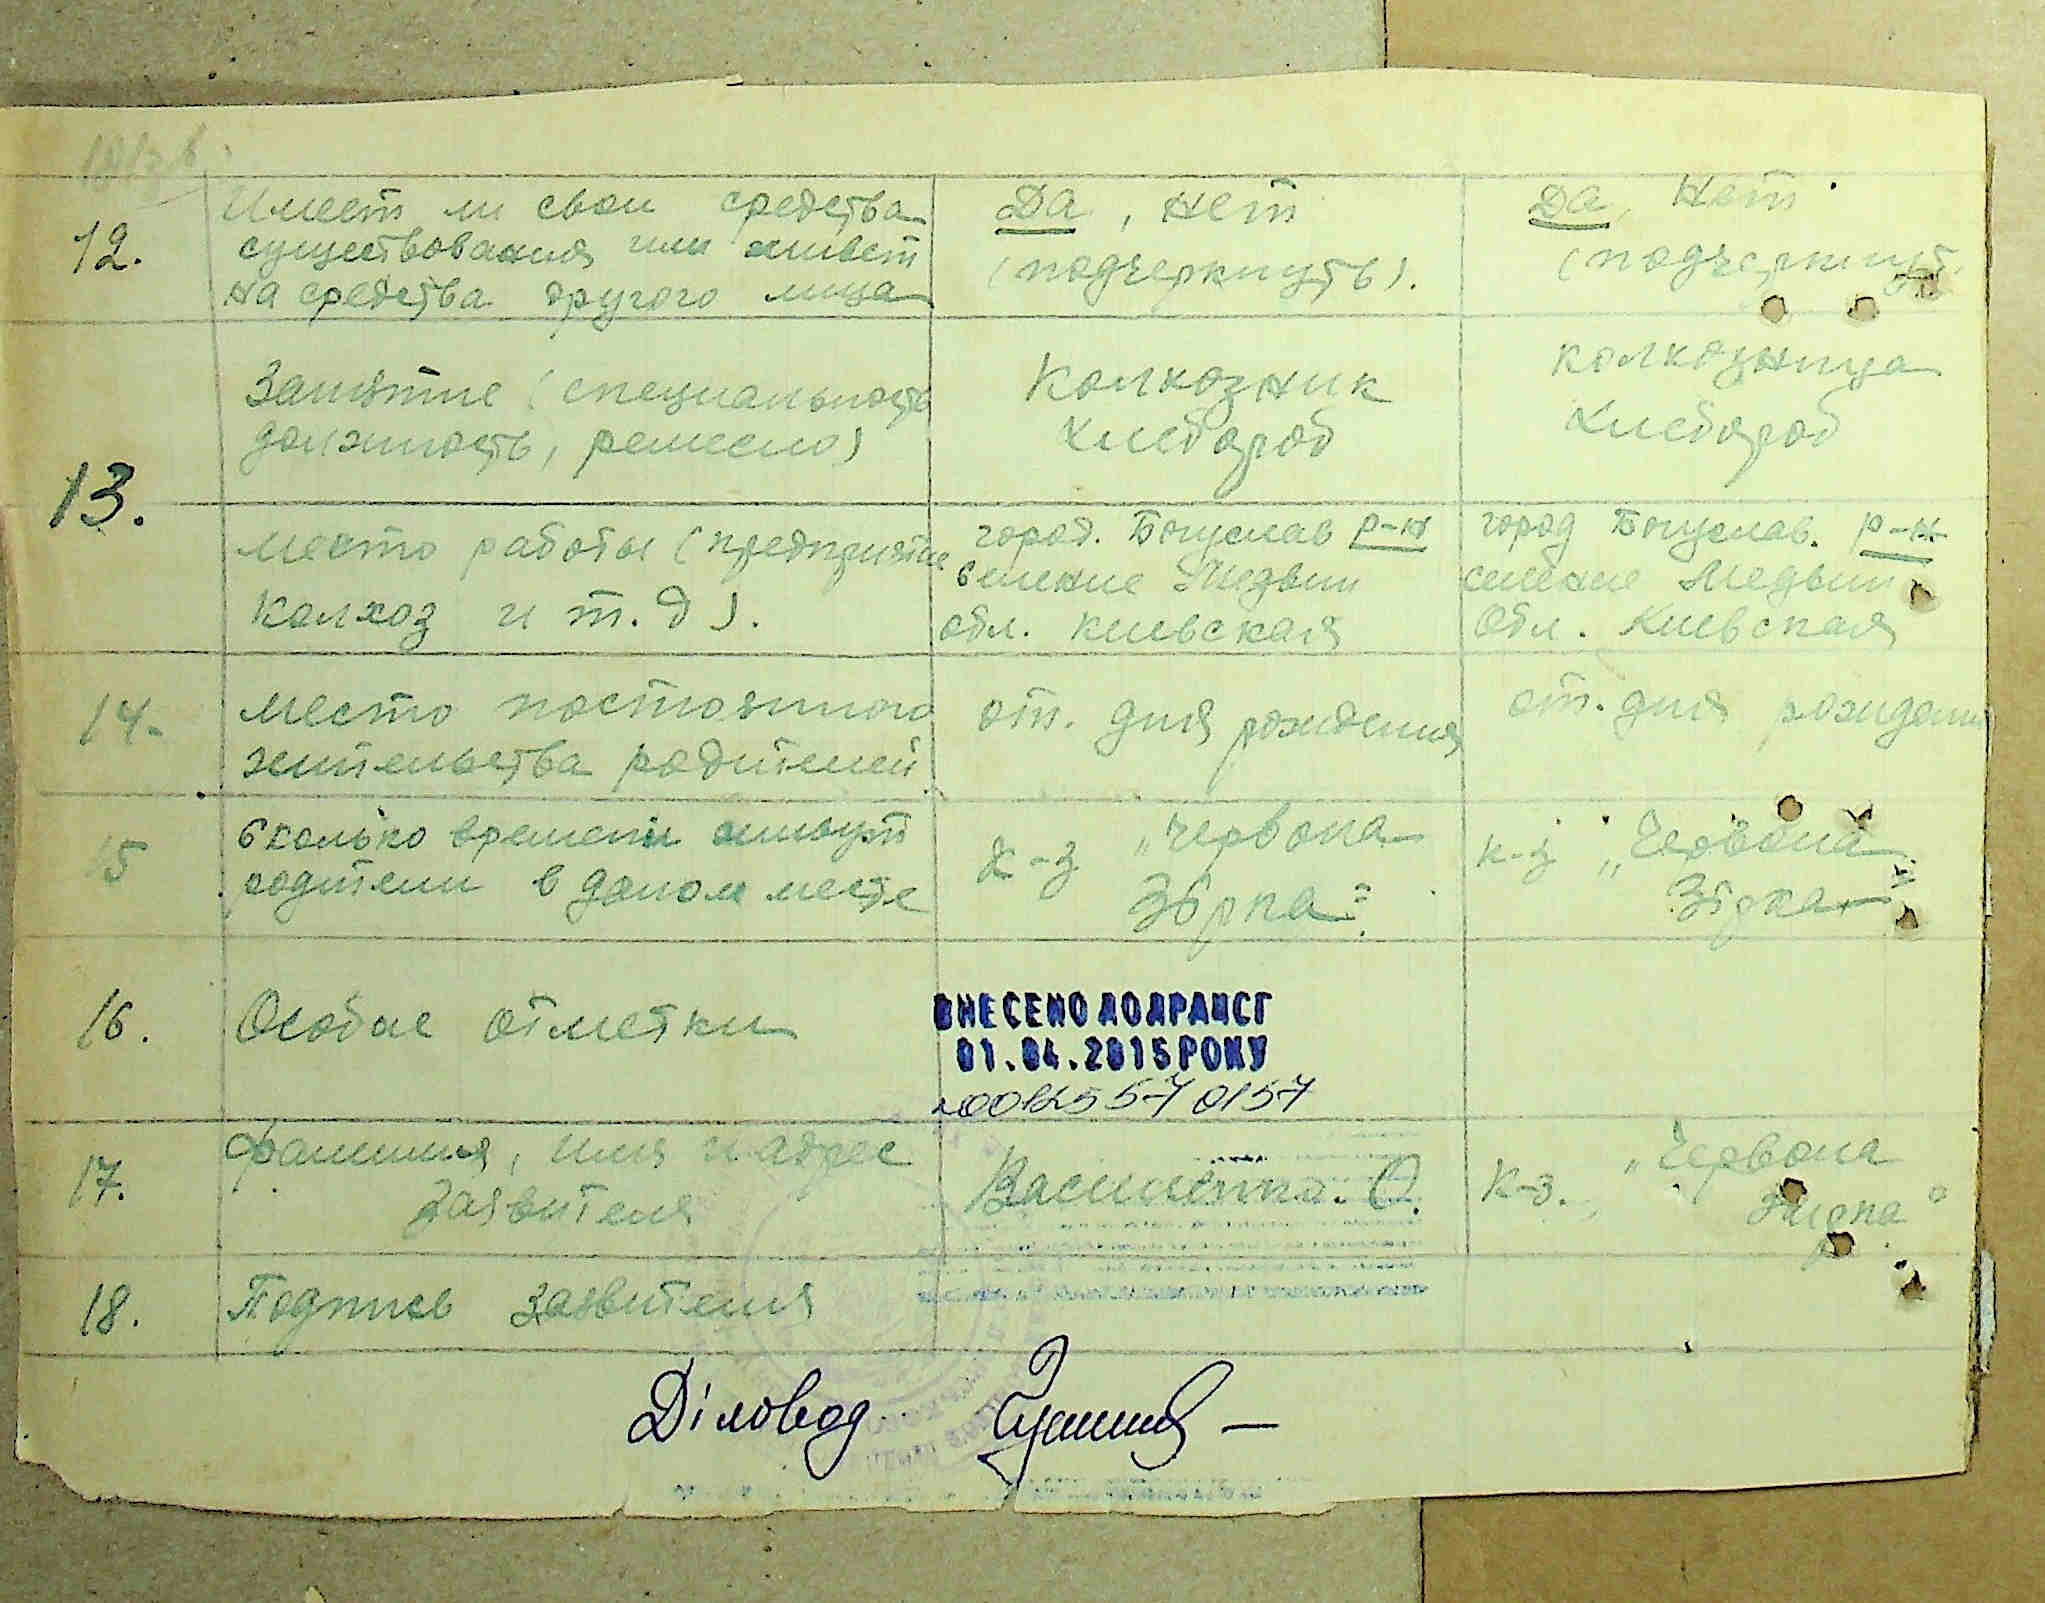 12.
Имеет ли свои средства
существования или живет
на средства другого лица
Да, нет
(подчеркнуть).
Да, Нет.
(подчеркнут.
13.
Занятие (специальность
должность, ремесло)
Колхозник
Хлебороб
колхозница
Хлебороб
место работы (предприятие
колхоз и т.д).
город. Богуслав р-н
селение Медвин
обл. киевская
город Богуслав. р-н
селение Медвин
Обл. Киевская
14.
место постоянного
жительства родителей
от. дня рождения
от. дня рождения
15
Сколько времени живут
родители в даном месте
к-з „Червона
Зірка"
к-з „Червона
Зірка
16.
Особые отметки
ВНЕСЕНО ДО ДРАЦСГ
01.04.2015 РОКУ
00125570157
17.
фамилия, имя и адрес
заявителя
О.
к-з. „Червона
Зирка"
18.
Подпись заявителя
Діловод